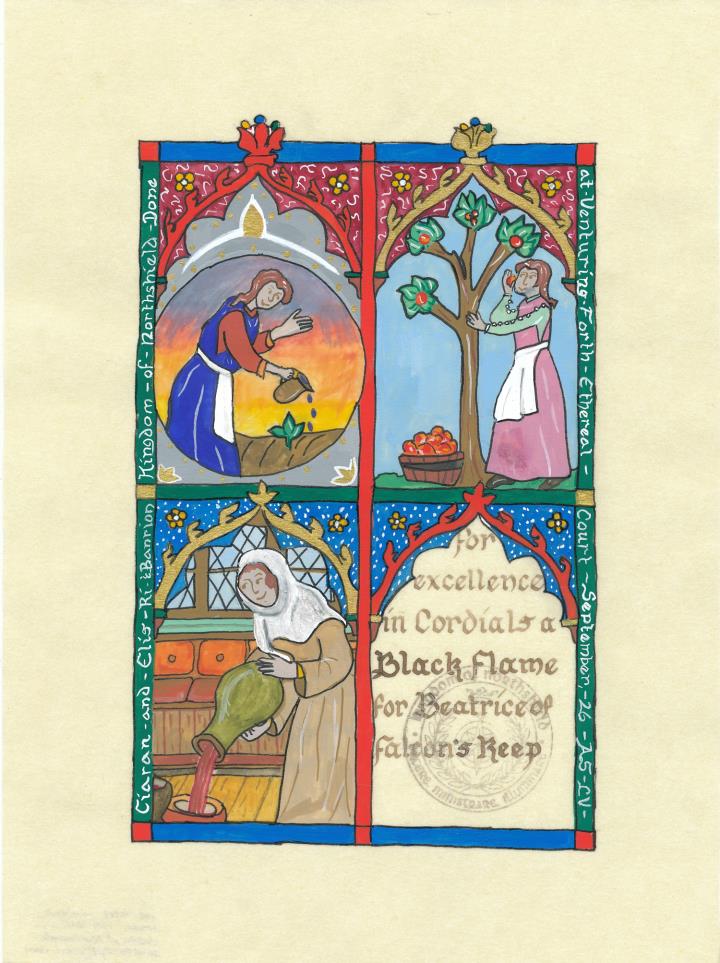 Ciaran-and-Elis-Ri-&Banrion
Kingdom-of-Northshield-Done
at-Venturing-Forth-Ethereal-
Court-September-26-AS-LV-
for
excellence
in Cordials a
Black Flame
for Beatrice of
Falcon's Keep
of northshield